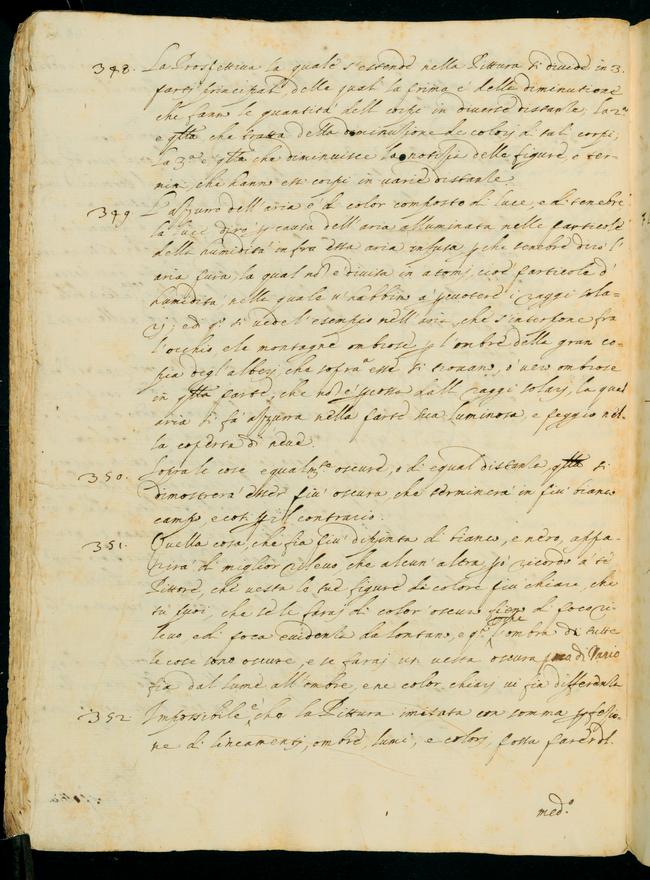 348. La Prospettiva la quale s'estende nella Pittura si divide in 3.
parti principali delle quali la prima è della diminutione
che fanno le quantità dell corpi in diverse distantie, la 2.ª
è qlla che tratta della diminutione de colorj di tali corpi;
la 3.ª è qlla che diminuisce la notitia delle figure, e ter-
mini, che hanno essi corpi in varie distantie.
349 L'azzurro dell'aria è di color composto di luce, e di tenebre
la luce dico p causa dell'aria alluminata nelle particole
della humidità infra essa aria infusa p che tenebre dico l'
aria pura, la qual nõ è divisa in atomj, cioè particole d'
humidità, nelle quale s'habbino à percotere i raggi sola-
rj, ed q.º si vede l'esempio nell'aria, che s'interpone fra
l'occhio e le montagne ombrose p l'ombre della gran co-
pia degl'alberj, che sopra esse si trovano, ò vero ombrose
in qlla parte, che nõ è pcossa dall raggi solarj, la qual
aria si fà azzurra nella parte sua luminosa, e peggio nel-
la coperta di neve.
350. Fra le cose equalm.te oscure, e di equal distantia, qlla si
dimostrerà esser più oscura che terminerà in più bianco
campo, e cosi p il contrario.
351. Quella cosa, che fia più dipinta di bianco, e nero, appa-
rirà di miglior rilevo che alcun'altra, pò ricordo à te
Pittore, che vesta le tue figure de colore più chiare, che
tu puoi, che se le faraj di color oscuro fien di poco ri-
levo e di poca evidentia da lontano, e q.º pche l'ombra di tutte
le cose sono oscure, e se faraj un vesta oscura poco di Vario
fia dal lume all'ombre, e ne color chiarj vi fia differentia
352 Impossibile è che la Pittura imitata con somma pfetio-
ne di lineamenti, ombre, lumi, e colorj possa parere del
med.º